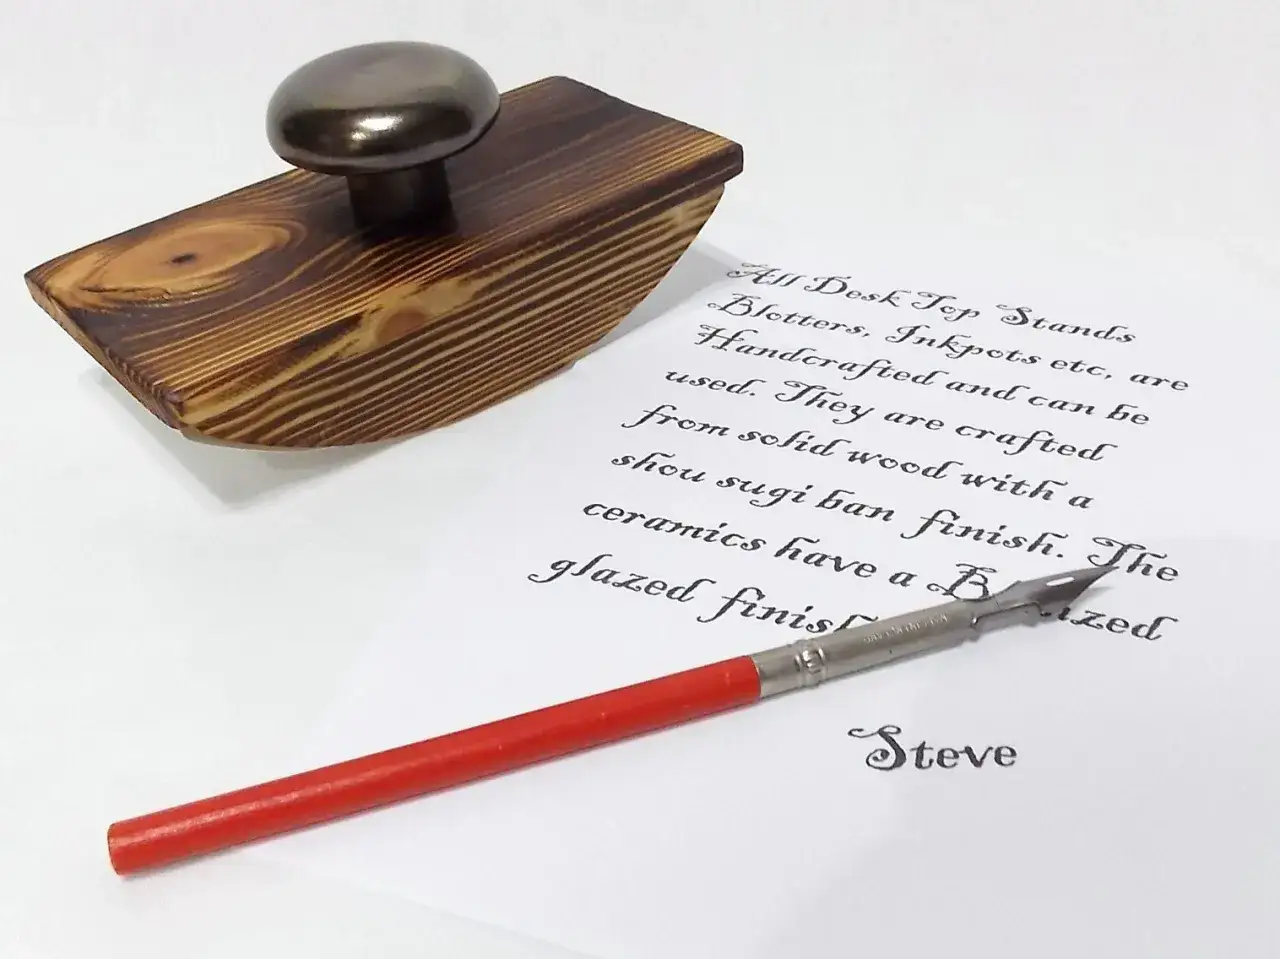 All Desk Top Stands
Blotters, Inkpots etc, are
Handcrafted and can be
used. They are crafted
from solid wood with a
shou sugi ban finish. The
ceramics have a
glazed
Steve